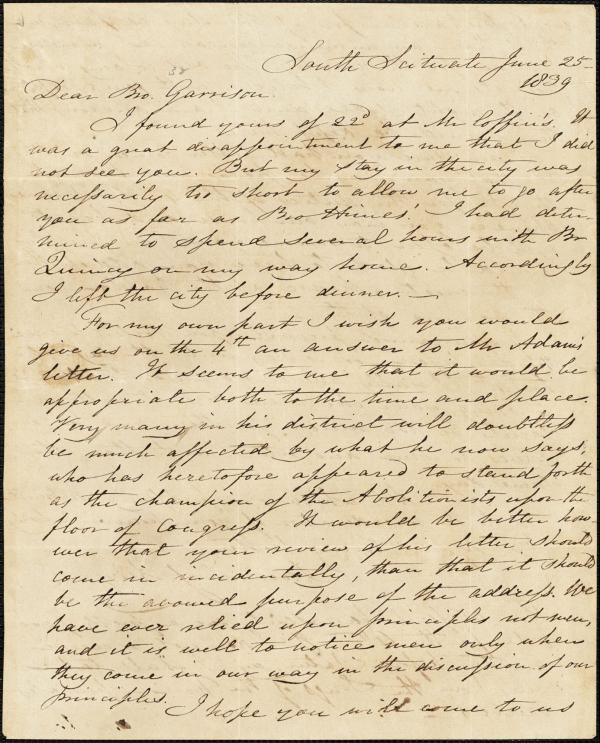 South Scituate June 25
1839
32
Dear Bro. Garrison.
I found yours of 22d at Mr Coffin's. It
was a great disappointment to me that I did
not see you. But my stay in the city was
necessarily too short to allow me to go after
you as far as Bro Himes'. I had deter-
mined to spend several hours with Br
Quincy on my way home. Accordingly
I left the city before dinner. —
For my own part I wish you would
give us on the 4th an answer to Mr Adams
letter. It seems to me that it would be
appropriate both to the time and place.
Very many in his district will doubtless
be much affected by what he now says,
who has heretofore appeared to stand forth
as the champion of the Abolitionists upon the
floor of Congress. It would be better how-
ever that your review of his letter should
come in incidentally, than that it should
be the avowed purpose of the address. We
have ever relied upon principles not men,
and it is well to notice men only when
they come in our way in the discussion of our
principles.
I hope you will come to us